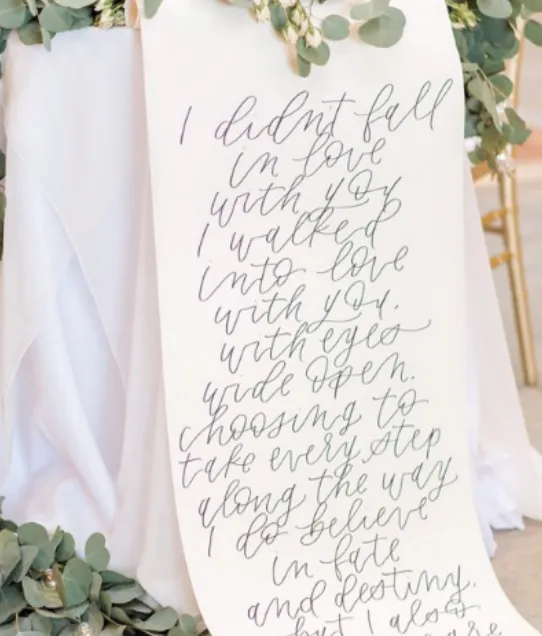 I didn't fall
in love
with you
I walked
into love
with you.
with eyes
wide open.
choosing to
take every step
along the way
I do believe
in fate
and destiny.
but I also